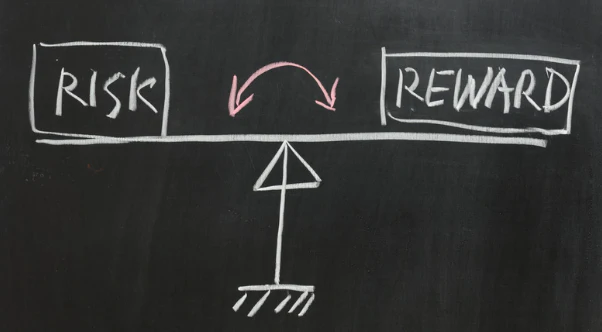 RISK
REWARD